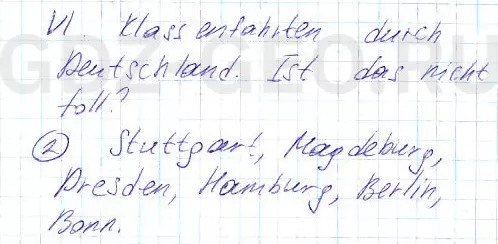 VI. Klassenfahrten durch
Deutschland. Ist das nicht
toll?
② Stuttgart, Magdeburg,
Dresden, Hamburg, Berlin,
Bonn.